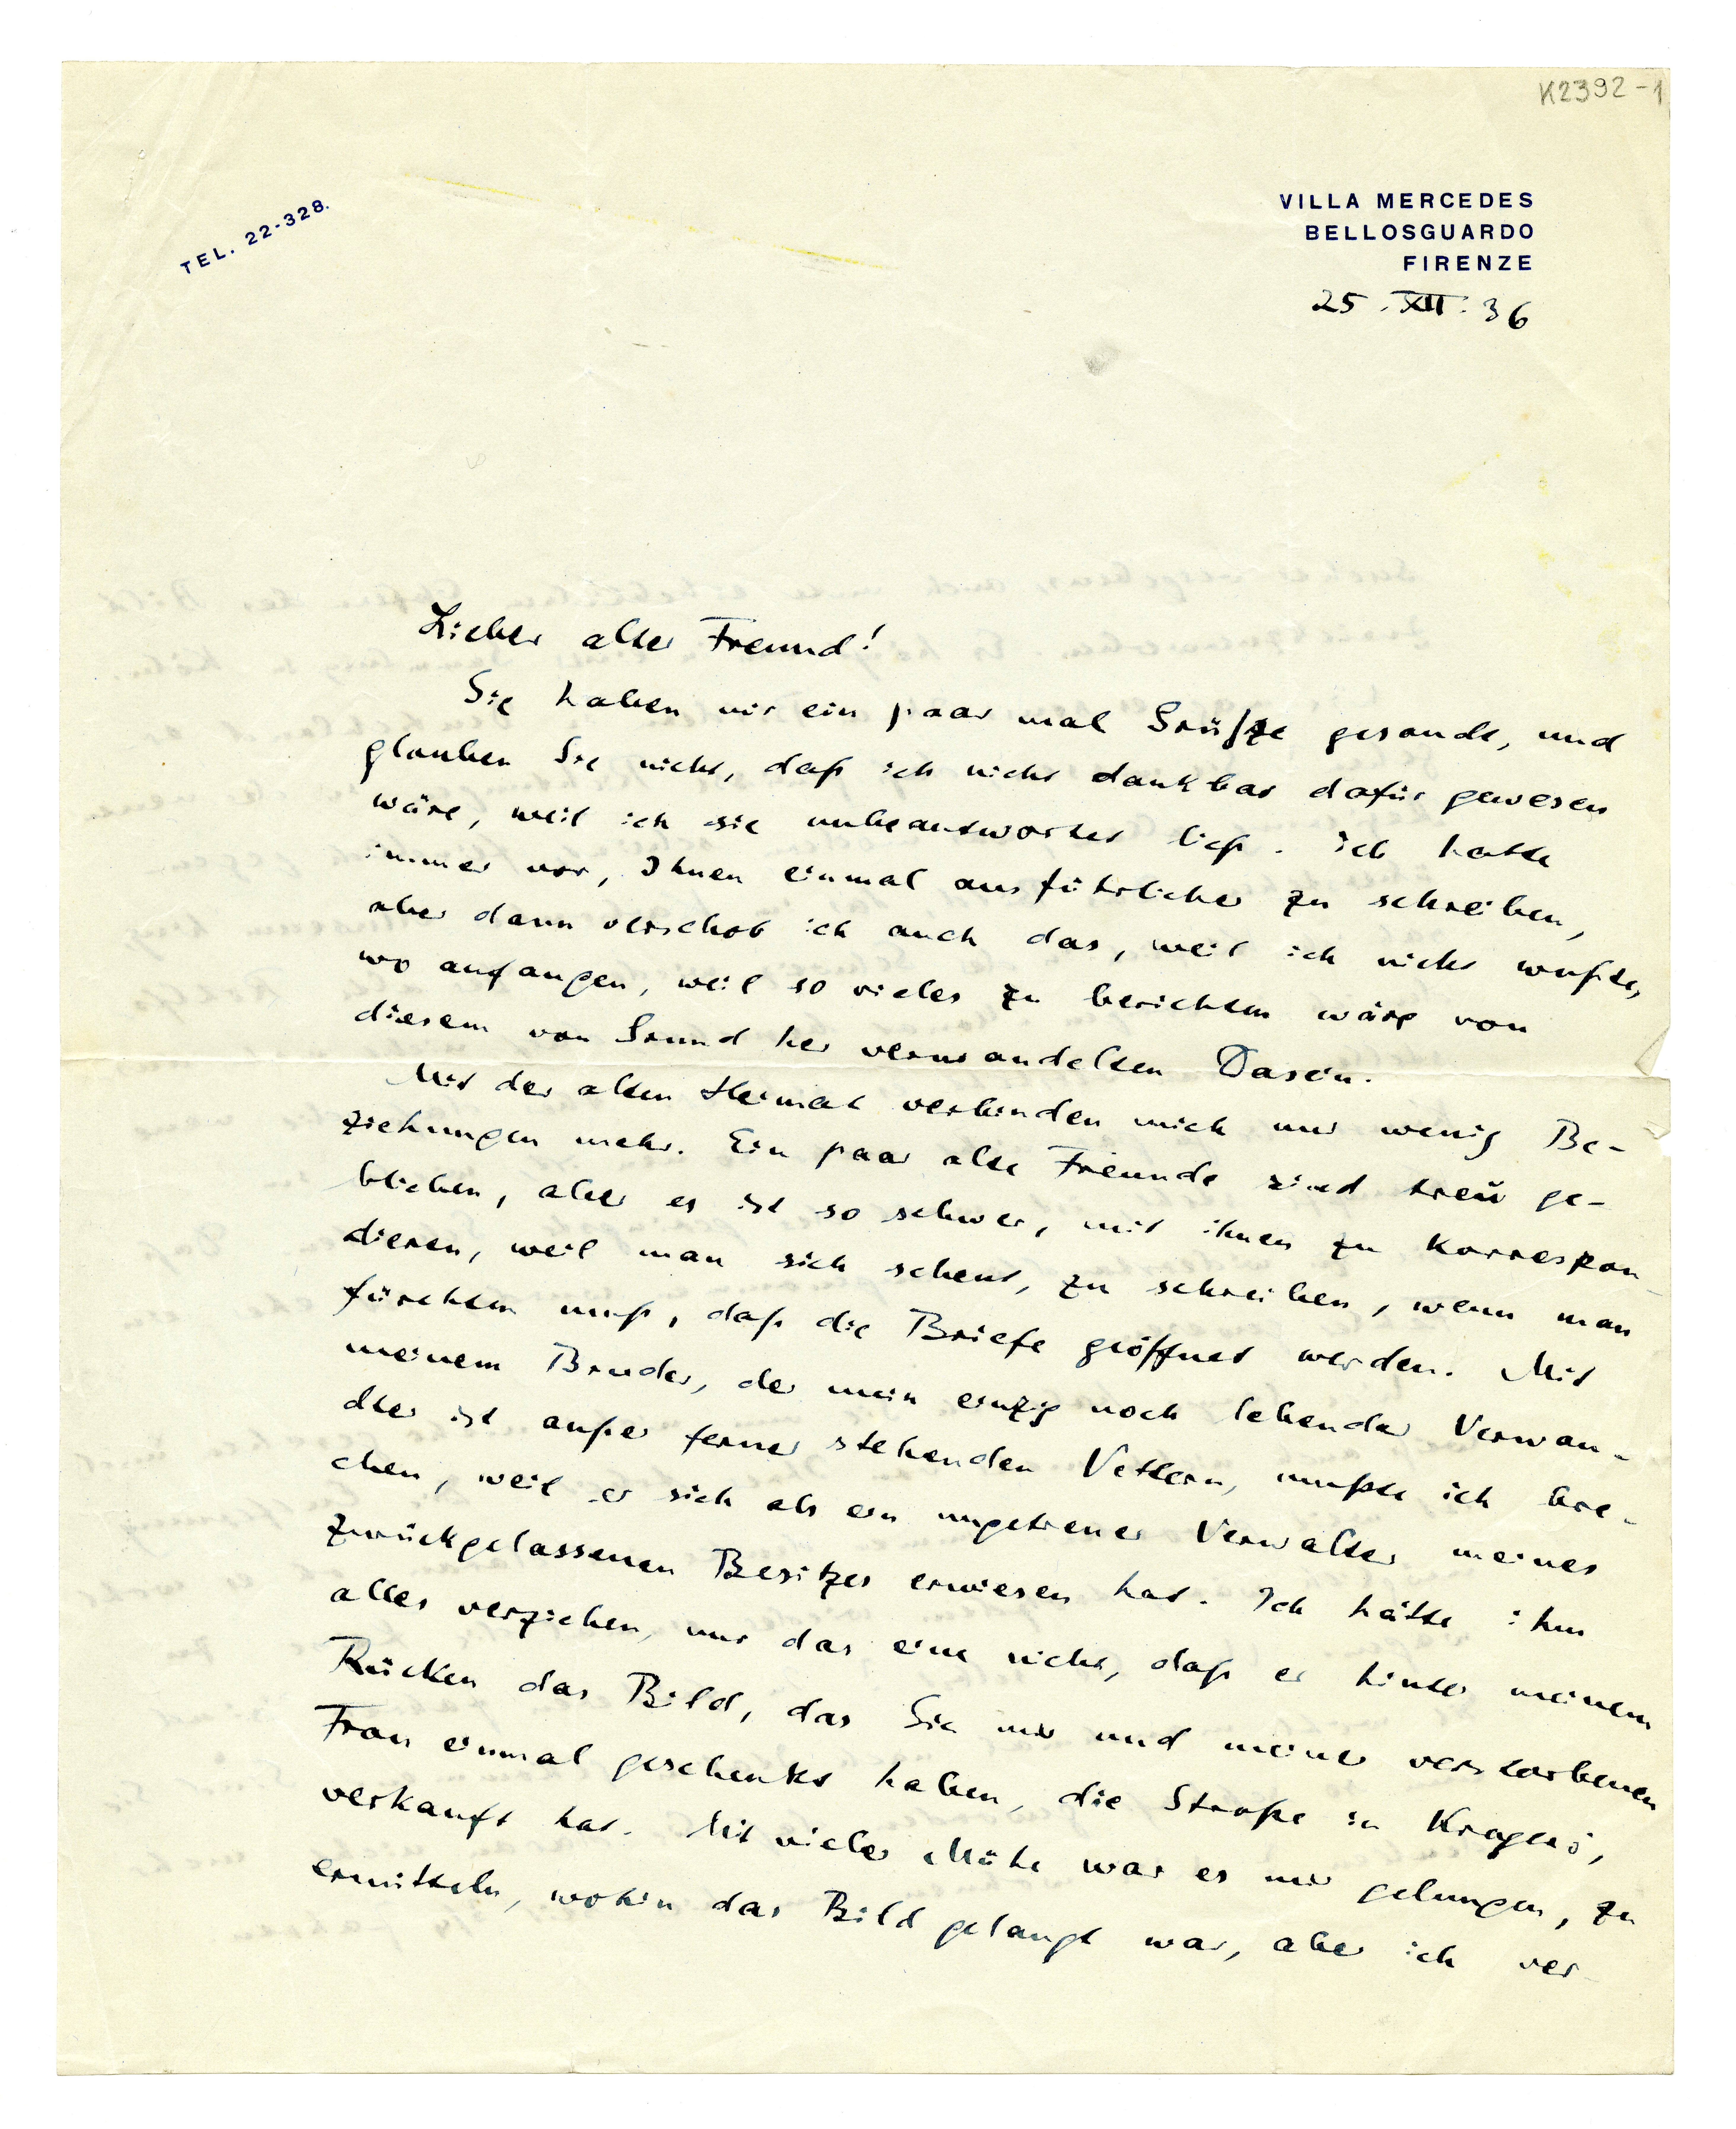 K2392-1
TEL. 22-328.
VILLA MERCEDES
BELLOSGUARDO
FIRENZE
25.XII.36
Lieber alter Freund!
Sie haben mir ein paar mal Grüße gesandt, und
glauben Sie nicht, daß ich nicht dankbar dafür gewesen
wäre, weil ich sie unbeantwortet ließ. Ich hatte
immer vor, Ihnen einmal ausführlicher zu schreiben,
aber dann verschob ich auch das, weil ich nicht wußte,
wo anfangen, weil so vieles zu berichten wäre von
diesem von Grund her verwandelten Dasein.
Mit der alten Heimat verbinden mich nur wenig Be-
ziehungen mehr. Ein paar alte Freunde sind treu ge-
blieben, aber es ist so schwer, mit ihnen zu korrespon-
dieren, weil man sich scheut, zu schreiben, wenn man
fürchten muß, daß die Briefe geöffnet werden. Mit
meinem Bruder, der mein einzig noch lebender Verwan-
dter ist außer ferner stehenden Vettern, mußte ich bre-
chen, weil er sich als ein ungetreuer Verwalter meines
zurückgelassenen Besitzes erwiesen hat. Ich hätte ihm
alles verziehen, nur das eine nicht, daß er hinter meinem
Rücken das Bild, das Sie mir und meiner verstorbenen
Frau einmal geschenkt haben, die Straße in Kragerö,
verkauft hat. Mit vieler Mühe war es mir gelungen, zu
ermitteln, wohin das Bild gelangt war, aber ich ver-